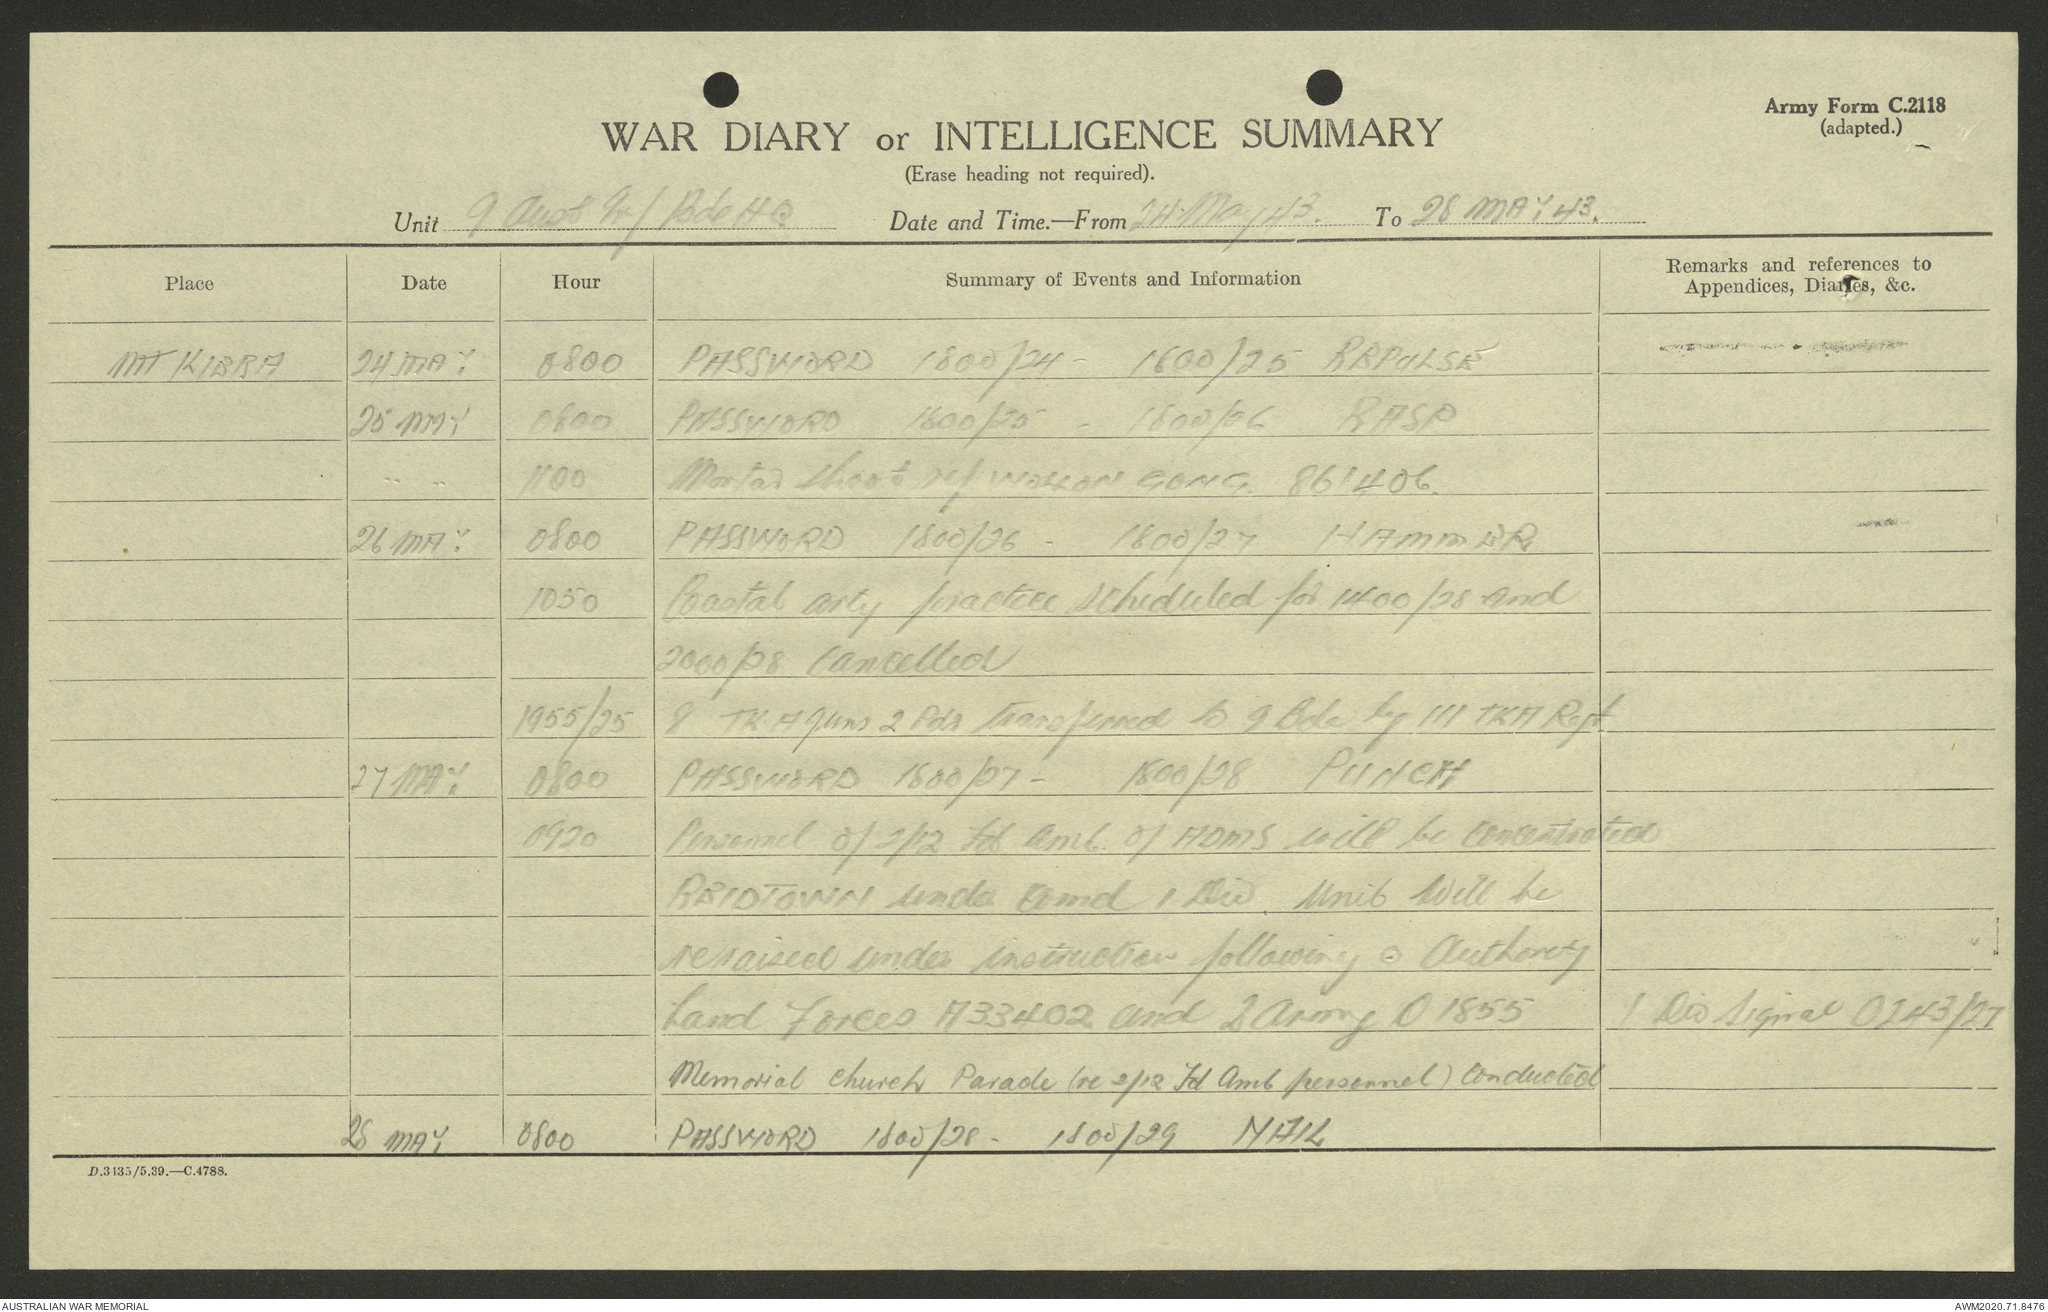 Army Form C.2118
(adapted.)
WAR DIARY or INTELLIGENCE SUMMARY
(Erase heading not required).
Unit 9 Aust Inf Bde HQ Date and Time.—From 24 May 43. To 28 MAY 43.
Place Date Hour Summary of Events and Information Remarks and references to
Appendices, Diaries, &c.
MT KIERA 24 MAY 0800 PASSWORD 1800/24 - 1800/25 REPULSE
25 MAY 0800 PASSWORD 1800/25 - 1800/26 RASP
" " 1100 Mortar shoot ref WOLLONGONG 861406.
26 MAY 0800 PASSWORD 1800/26 - 1800/27 HAMMER
1050 Coastal arty practice scheduled for 1400/28 and
2000/28 cancelled
1955/25 8 TKA guns 2 Pdr transferred to 9 Bde by 111 TKA Regt
27 MAY 0800 PASSWORD 1800/27 - 1800/28 PUNCH
0920 Personnel of 2/12 Fd Amb. of ADMS will be concentrated
REIDTOWN under comd 1 Div. Unit will be
reraised under instruction following Authority
Land Forces A33402 and 2 Army O 1855 1 Div Signal O243/27
Memorial church Parade (re 2/12 Fd Amb personnel) conducted
28 MAY 0800 PASSWORD 1800/28 - 1800/29 NAIL
D.3435/5.39.—C.4788.
AUSTRALIAN WAR MEMORIAL AWM2020.71.8476